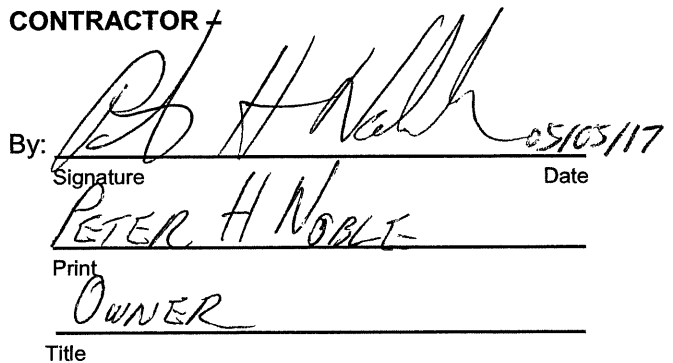 CONTRACTOR –
By: Peter H Noble 05/05/17
Signature Date
PETER H NOBLE
Print
OWNER
Title